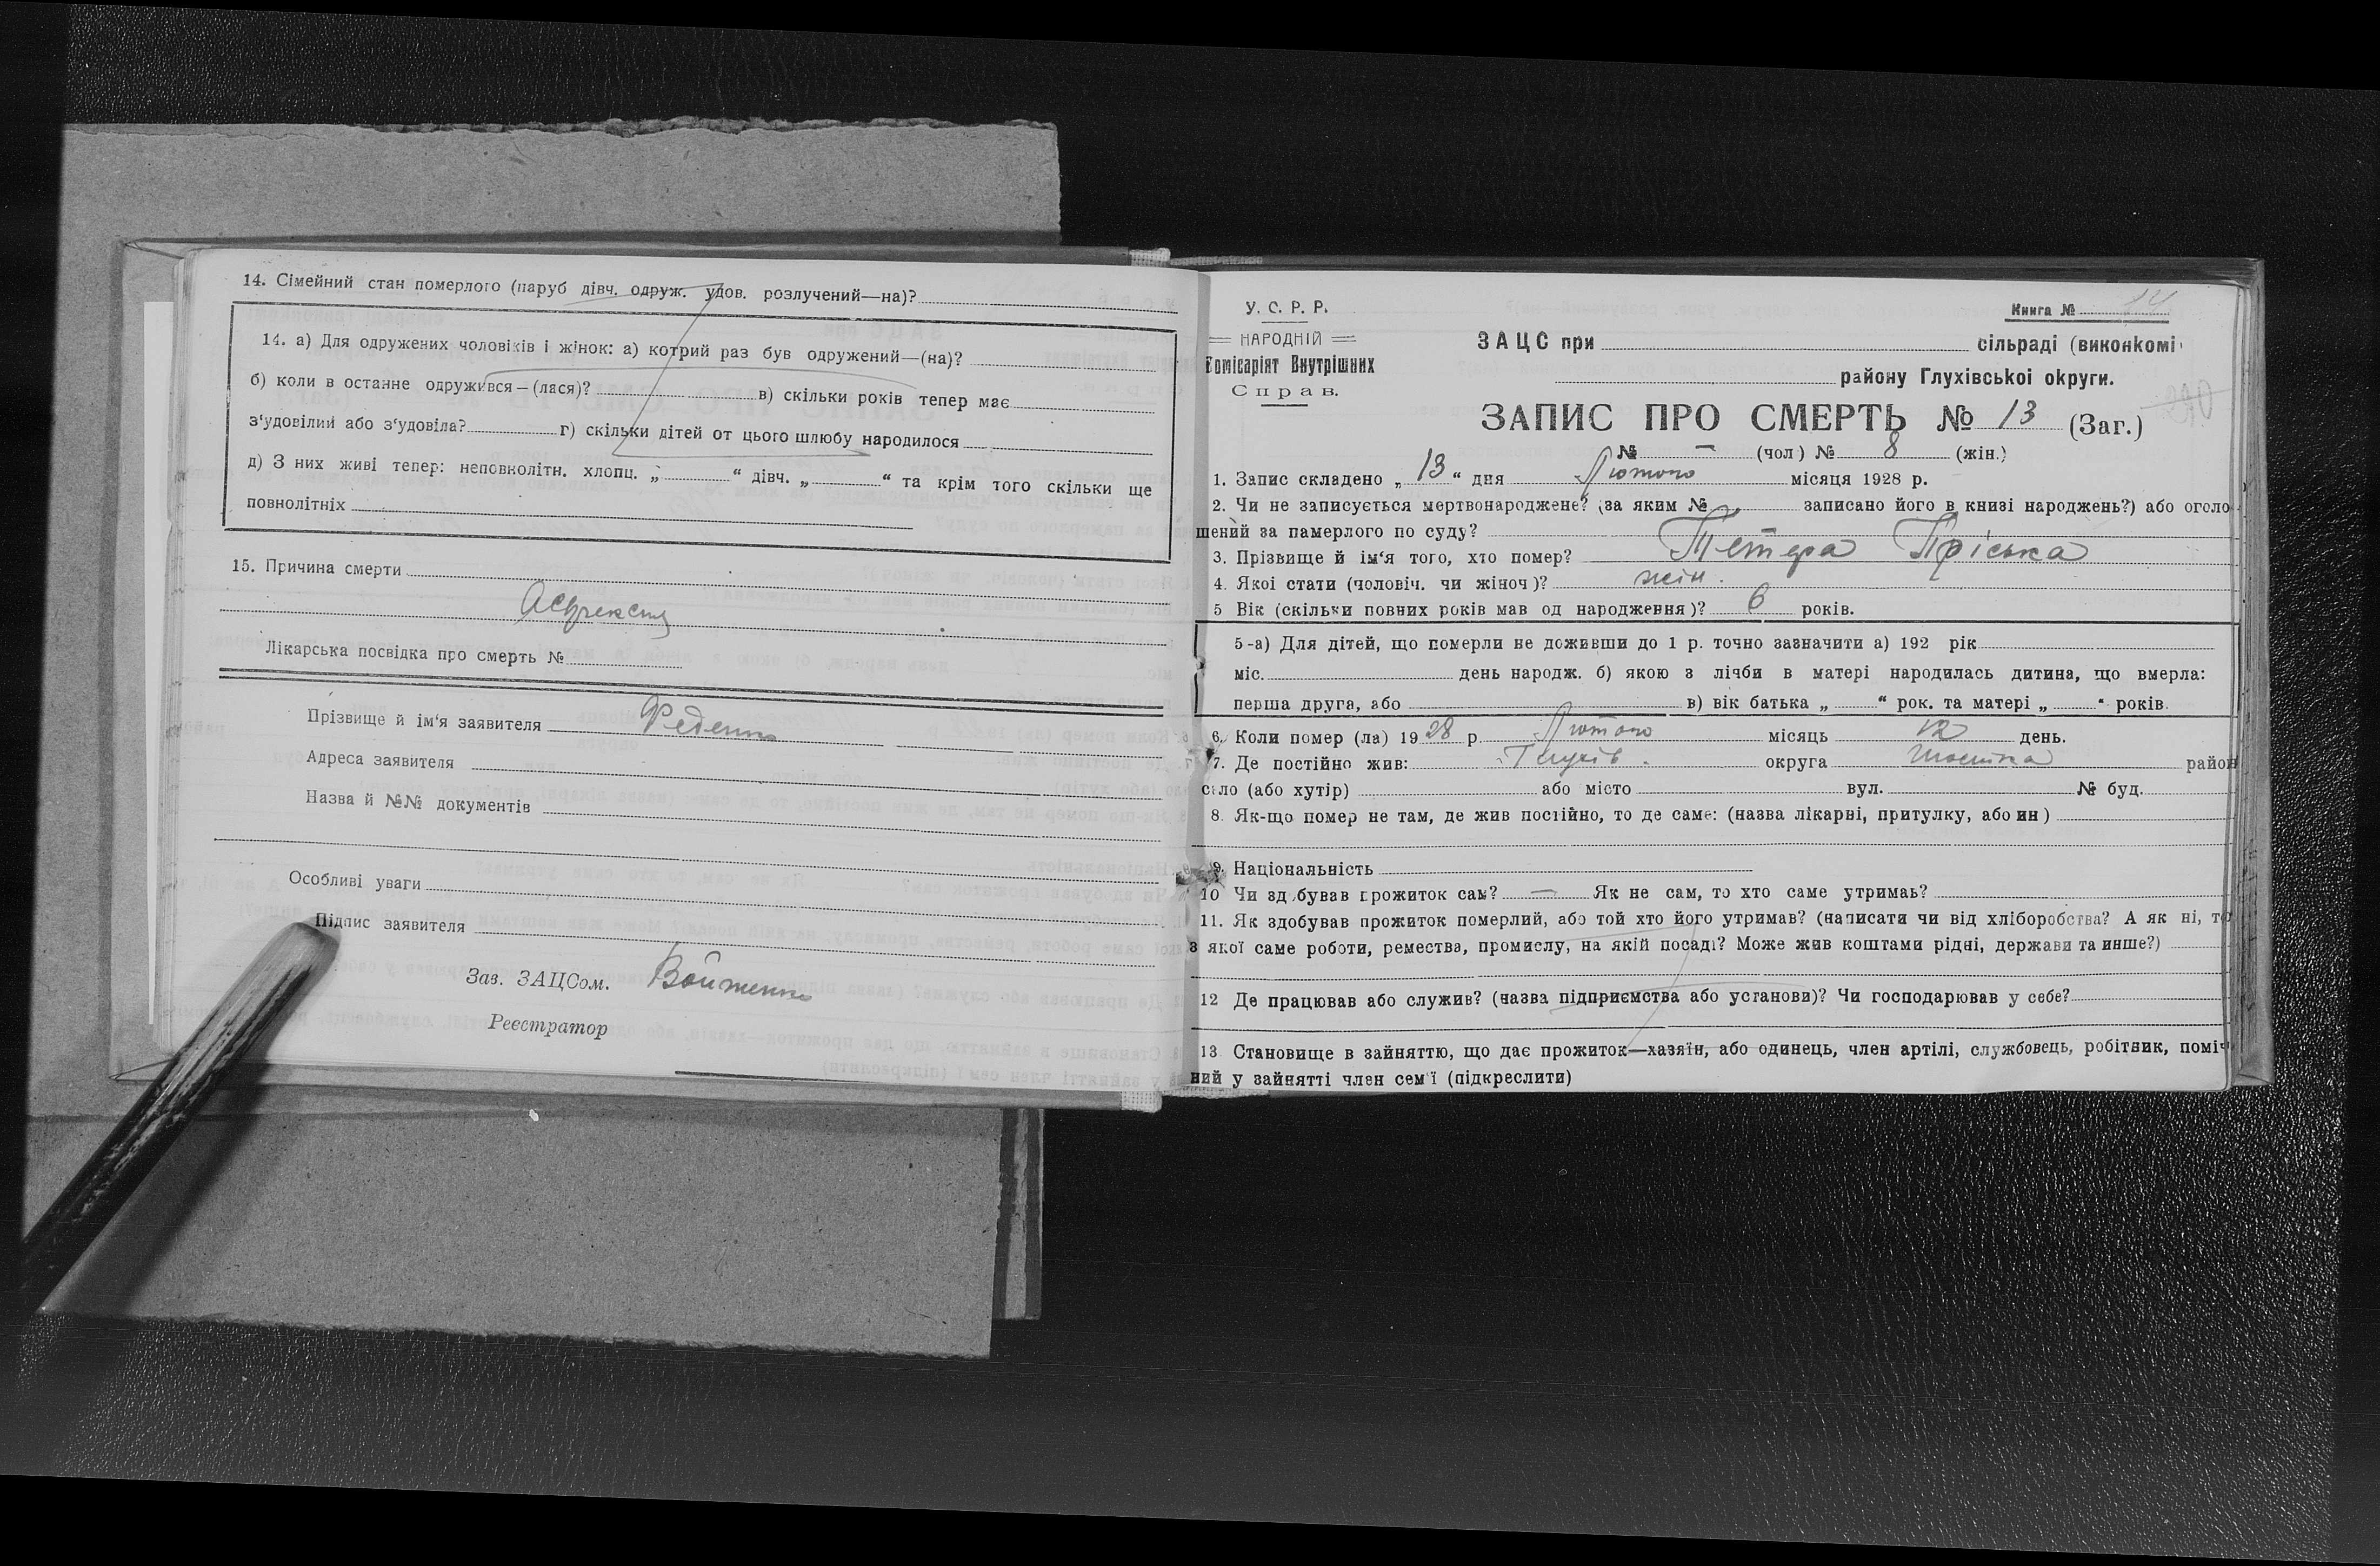 14. Сімейний стан померлого (паруб дівч. одруж. удов. розлучений—на)?
14. а) Для одружених чоловіків і жінок: а) котрий раз був одружений—(на)?
б) коли в останнє одружився—(лася)? в) скільки років тепер має
з‘удовілий або з‘удовіла? г) скільки дітей от цього шлюбу народилося
д) З них живі тепер: неповнолітн. хлопц. „ “ дівч. „ “ та крім того скільки ще
повнолітніх
15. Причина смерти
Лікарська посвідка про смерть №
Прізвище й ім‘я заявителя
Адреса заявителя
Назва й №№ документів
Особливі уваги
Підпис заявителя
Зав. ЗАЦСом.
Реєстратор
У. С. Р. Р.
НАРОДНІЙ
Комісаріят Внутрішних
Справ.
Книга № 14
ЗАЦС при сільраді (виконкомі
району Глухівської округи.
ЗАПИС ПРО СМЕРТЬ № 13 (Заг.)
№ — (чол) № 8 (жін.)
1. Запис складено „ 13 “ дня Лютого місяця 1928 р.
2. Чи не записується мертвонароджене? (за яким № записано його в книзі народжень?) або оголо
шений за памерлого по суду?
3. Прізвище й ім‘я того, хто помер? Тетера Пріська
4. Якоі стати (чоловіч. чи жіноч)? жін.
5 Вік (скільки повних років мав од народження)? 6 років.
5-а) Для дітей, що померли не доживши до 1 р. точно зазначити а) 192 рік
міс. день народж. б) якою з лічби в матері народилась дитина, що вмерла:
перша друга, або в) вік батька „ “ рок. та матері „ “ років.
6. Коли помер (ла) 1928 р. Лютого місяць 12 день.
7. Де постійно жив: Глухів. округа район
село (або хутір) або місто вул. № буд.
8. Як-що помер не там, де жив постійно, то де саме: (назва лікарні, притулку, або ин)
9. Національність
10 Чи здобував прожиток сам? — Як не сам, то хто саме утримаь?
11. Як здобував прожиток померлий, або той хто його утримав? (написати чи від хліборобства? А як ні, то
з якої саме роботи, ремества, промислу, на якій посаді? Може жив коштами рідні, держави та инше?)
12 Де працював або служив? (назва підприємства або установи)? Чи господарював у себе?
13 Становище в зайняттю, що дає прожиток—хазяїн, або одинець, член артілі, службовець, робітник, поміч
ний у зайнятті член сем‘ї (підкреслити)